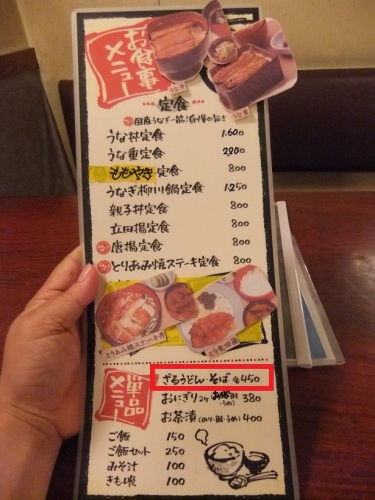 お食事
メニュー
うな丼
うな重
定食
国産うなぎ一筋!自慢の旨さ
うな丼定食 1.600
うな重定食 2200
ももやき定食 800
うなぎ柳川鍋定食 1.250
親子丼定食 800
立田揚定食 800
唐揚定食 800
とりあみ焼ステーキ定食 800
とりあみ焼ステーキ丼
とり竜田揚
単品
メニュー
ざるうどん・そば 各450
おにぎり 2ケ 380
お茶漬(のり・鮭・うめ) 400
ご飯 150
ご飯セット 250
みそ汁 100
きも吸 100